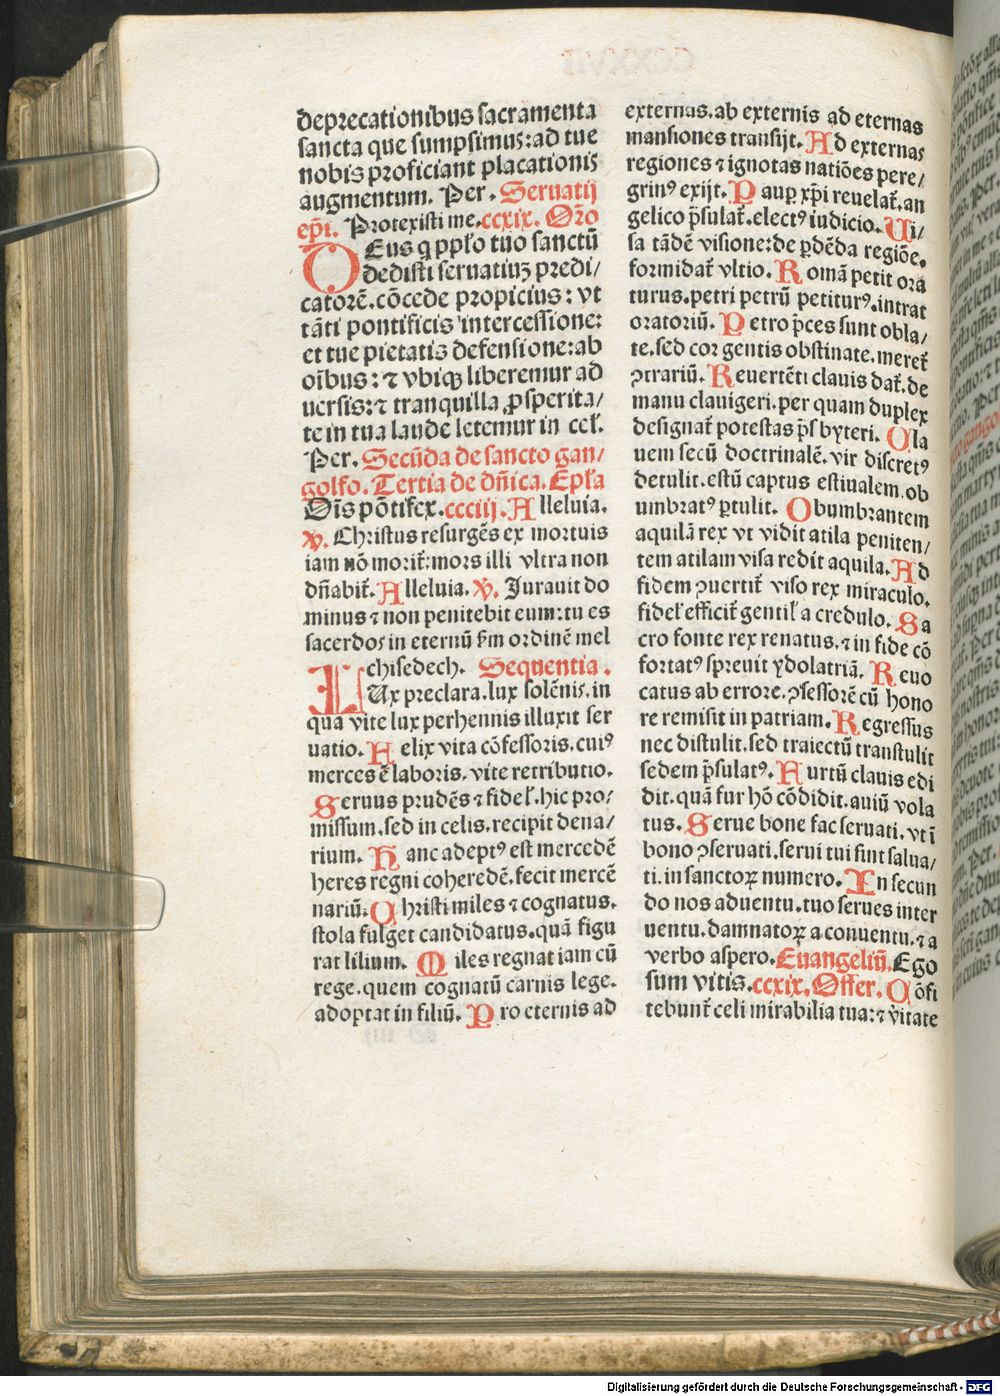 deprecationibus sacramenta
sancta que sumpsimus: ad tue
nobis proficiant placationis
augmentum. Per. Seruatij
ep̄i. Protexisti me. ccxix. Or̄o
DEus q pp̄lo tuo sanctū
dedisti seruatiuȝ predi/
catorē. cōcede propicius: vt
tāti pontificis intercessione:
et tue pietatis defensione: ab
oībus: ⁊ vbiqȝ liberemur ad
uersis: ⁊ tranquilla ꝓsperita/
te in tua laude letemur in cel̄.
Per. Secūda de sancto gan/
golfo. Tertia de dn̄ica. Epl̄a
Oīs pōtifex. ccciij. Alleluia.
℣. Christus resurgēs ex mortuis
iam nō morit̄: mors illi vltra non
dn̄abit̄. Alleluia. ℣. Jurauit do
minus ⁊ non penitebit eum: tu es
sacerdos in eternū s̄m ordinē mel
chisedech. Sequentia.
LUx preclara. lux solēnis. in
qua vite lux perhennis illuxit ser
uatio. Felix vita cōfessoris. cuiꝰ
merces ē laboris. vite retributio.
Seruus prudēs ⁊ fidel̄. hic pro/
missum. sed in celis. recipit dena/
rium. Hanc adeptꝰ est mercedē
heres regni coheredē. fecit mercē
nariū. Christi miles ⁊ cognatus.
stola fulget candidatus. quā figu
rat lilium. Miles regnat iam cū
rege. quem cognatū carnis lege.
adoptat in filiū. Pro eternis ad
externas. ab externis ad eternas
mansiones transijt. Ad externas
regiones ⁊ ignotas natiōes pere/
grinꝰ exijt. Paup̲ xp̄i reuelat̄. an
gelico p̄sulat̄. electꝰ iudicio. Ui/
sa tādē visione: de p̲dēda regiōe.
formidat̄ vltio. Romā petit ora
turus. petri petrū petiturꝰ. intrat
oratoriū. Petro p̄ces sunt obla/
te. sed cor gentis obstinate. meret̄
ꝯtrariū. Reuertēti clauis dat̄. de
manu clauigeri. per quam duplex
designat̄ potestas p̄sbyteri. Cla
uem secū doctrinalē. vir discretꝰ
detulit. estū captus estiualem. ob
umbratꝰ p̲tulit. Obumbrantem
aquilā rex vt vidit atila peniten/
tem atilam visa redit aquila. Ad
fidem ꝯuertit̄ viso rex miraculo.
fidel̄ efficit̄ gentil̄ a credulo. Sa
cro fonte rex renatus. ⁊ in fide cō
fortatꝰ spreuit ydolatriā. Reuo
catus ab errore. ꝯfessorē cū hono
re remisit in patriam. Regressus
nec distulit. sed traiectū transtulit
sedem p̄sulatꝰ. Furtū clauis edi
dit. quā fur hō cōdidit. auiū vola
tus. Serue bone fac seruati. vt ī
bono ꝯseruati. serui tui sint salua/
ti. in sanctoꝝ numero. In secun
do nos aduentu. tuo serues inter
uentu. damnatoꝝ a conuentu. ⁊ a
verbo aspero. Euangeliū. Ego
sum vitis. ccxix. Offer. Cōfi
tebunt̄ celi mirabilia tua: ⁊ v̄itate
Digitalisierung gefördert durch die Deutsche Forschungsgemeinschaft - DFG